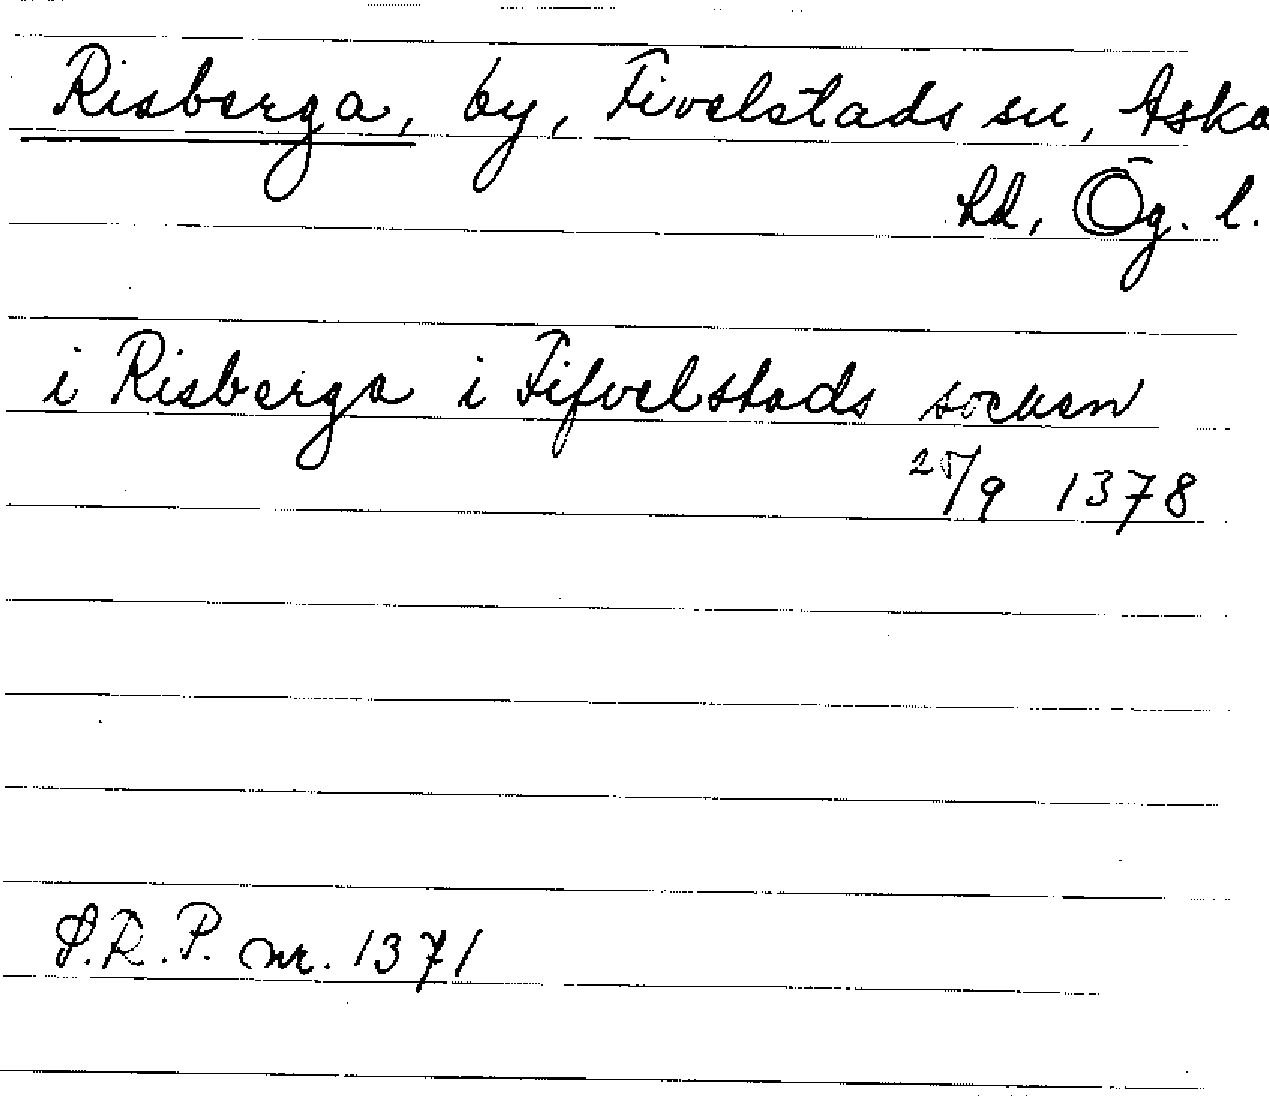 Risberga, by, Fivelstads sn, Aska
hd, Ög. l.
i Risberga i Fifvelstads socken
25/9 1378
S.R.P. nr. 1371